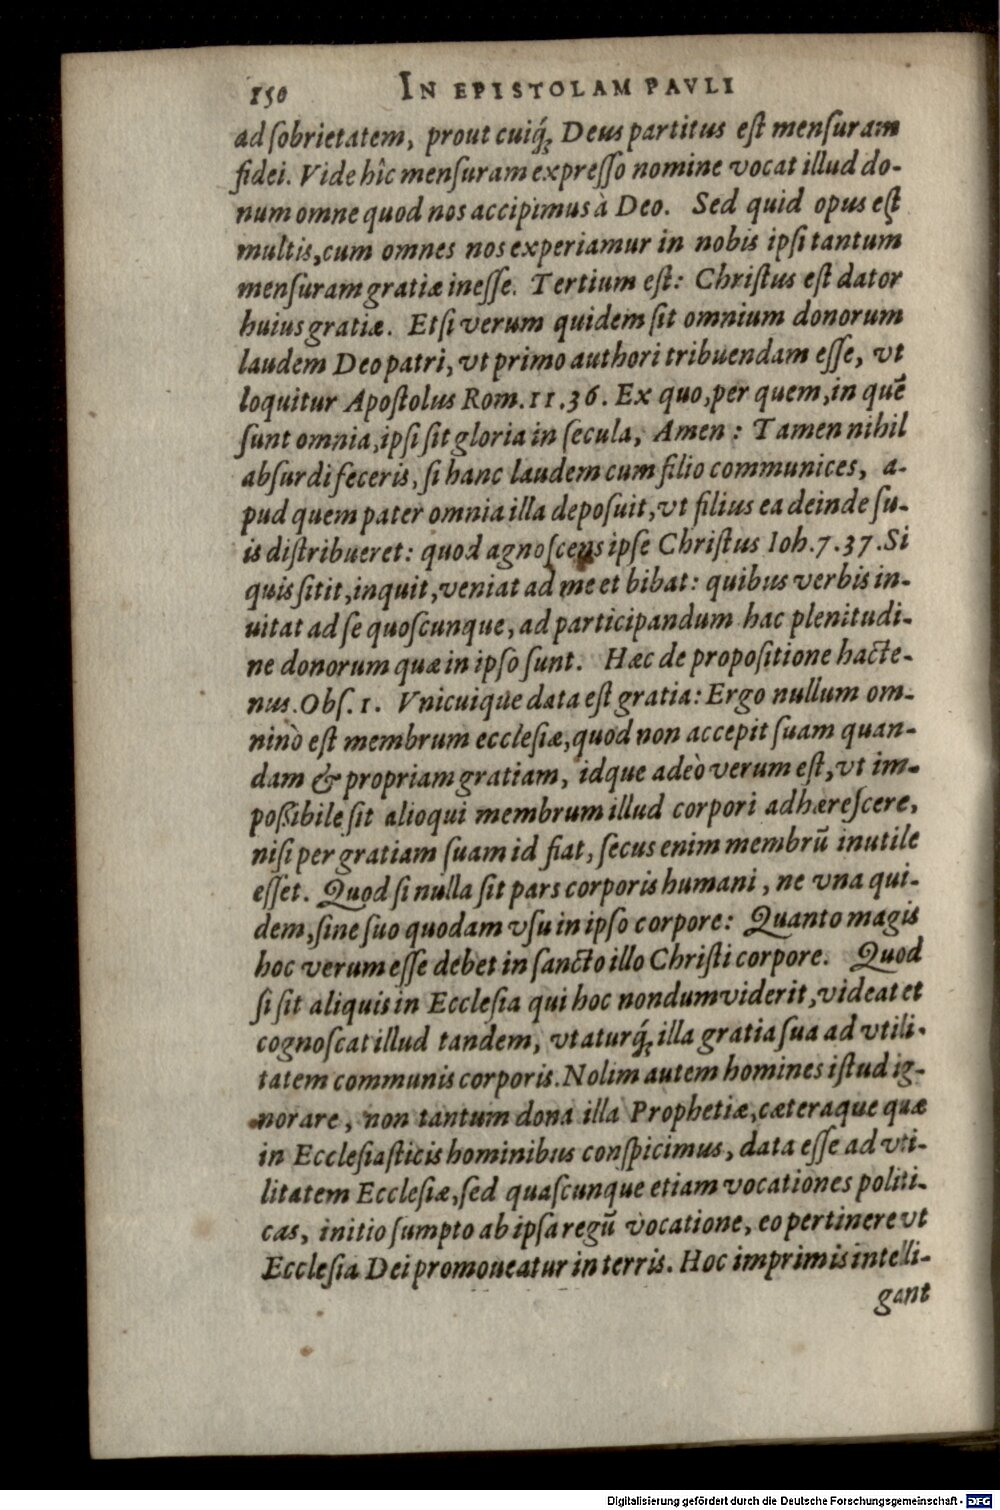 150 IN EPISTOLAM PAVLI
ad ſobrietatem, prout cuiq́; Deus partitus eſt menſuram
fidei. Vide hîc menſuram expreſſo nomine vocat illud do-
num omne quod nos accipimus à Deo. Sed quid opus eſt
multis, cum omnes nos experiamur in nobis ipſi tantum
menſuram gratiæ ineſſe. Tertium eſt: Chriſtus eſt dator
huius gratiæ. Etſi verum quidem ſit omnium donorum
laudem Deo patri, vt primo authori tribuendam eſſe, vt
loquitur Apoſtolus Rom. 11. 36. Ex quo, per quem, in quẽ
ſunt omnia, ipſi ſit gloria in ſecula, Amen: Tamen nihil
abſurdi feceris, ſi hanc laudem cum filio communices, a-
pud quem pater omnia illa depoſuit, vt filius ea deinde ſu-
is diſtribueret: quod agnoſcens ipſe Chriſtus Ioh. 7. 37. Si
quis ſitit, inquit, veniat ad me et bibat: quibus verbis in-
uitat ad ſe quoſcunque, ad participandum hac plenitudi-
ne donorum quæ in ipſo ſunt. Hæc de propoſitione hacte-
nus. Obſ. 1. Vnicuique data eſt gratia: Ergo nullum om-
ninò eſt membrum eccleſiæ, quod non accepit ſuam quan-
dam & propriam gratiam, idque adeò verum eſt, vt im-
poßibile ſit alioqui membrum illud corpori adhæreſcere,
niſi per gratiam ſuam id fiat, ſecus enim membrũ inutile
eſſet. Quod ſi nulla ſit pars corporis humani, ne vna qui-
dem, ſine ſuo quodam vſu in ipſo corpore: Quanto magis
hoc verum eſſe debet in ſancto illo Chriſti corpore. Quod
ſi ſit aliquis in Eccleſia qui hoc nondum viderit, videat et
cognoſcat illud tandem, vtaturq́; illa gratia ſua ad vtili-
tatem communis corporis. Nolim autem homines iſtud ig-
norare, non tantum dona illa Prophetiæ, cæteraque quæ
in Eccleſiaſticis hominibus conſpicimus, data eſſe ad vti-
litatem Eccleſiæ, ſed quaſcunque etiam vocationes politi-
cas, initio ſumpto ab ipſa regũ vocatione, eo pertinere vt
Eccleſia Dei promoueatur in terris. Hoc imprimis intelli-
gant
Digitalisierung gefördert durch die Deutsche Forschungsgemeinschaft - DFG